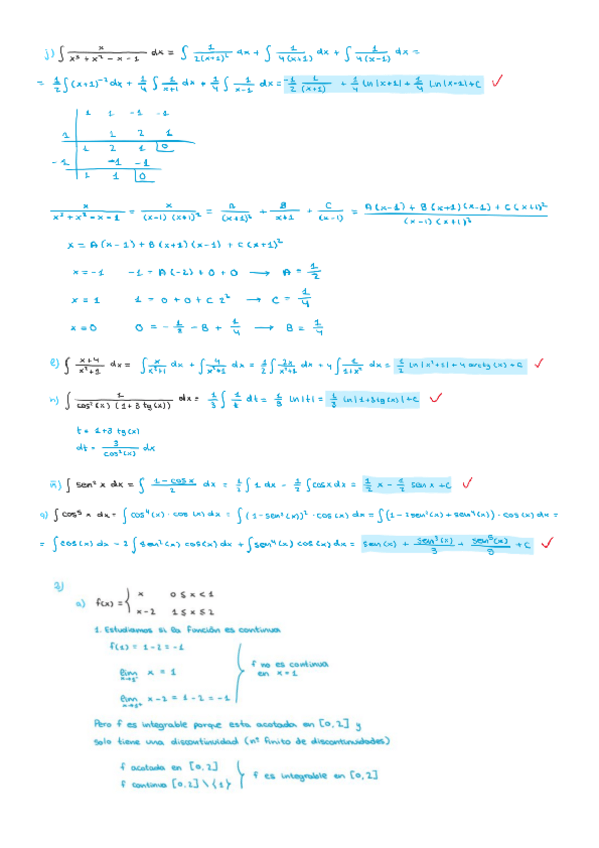 j) ∫ x/(x³+x²-x-1) dx = ∫ 1/(2(x+1)²) dx + ∫ 1/(4(x+1)) dx + ∫ 1/(4(x-1)) dx =
= 1/2 ∫ (x+1)⁻² dx + 1/4 ∫ 1/(x+1) dx + 1/4 ∫ 1/(x-1) dx = -1/2 1/(x+1) + 1/4 ln|x+1| + 1/4 ln|x-1| + C ✓
1 1 -1 -1
1 1 2 1
1 2 1 0
-1 -1 -1
1 1 0
x/(x³+x²-x-1) = x/((x-1)(x+1)²) = A/(x+1)² + B/(x+1) + C/(x-1) = (A(x-1) + B(x+1)(x-1) + C(x+1)²)/((x-1)(x+1)²)
x = A(x-1) + B(x+1)(x-1) + C(x+1)²
x=-1 -1 = A(-2) + 0 + 0 → A = 1/2
x=1 1 = 0 + 0 + C 2² → C = 1/4
x=0 0 = -1/2 - B + 1/4 → B = 1/4
∫ (x+4)/(x²+1) dx = ∫ x/(x²+1) dx + ∫ 4/(x²+1) dx = 1/2 ∫ 2x/(x²+1) dx + 4 ∫ 1/(1+x²) dx = 1/2 ln|x²+1| + 4 arctg(x) + C ✓
n) ∫ 1/(cos²(x) (1+3tg(x))) dx = 1/3 ∫ 1/t dt = 1/3 ln|t| = 1/3 ln|1+3tg(x)| + C ✓
t = 1+3tg(x)
dt = 3/cos²(x) dx
ñ) ∫ sen² x dx = ∫ (1-cos x)/2 dx = 1/2 ∫ 1 dx - 1/2 ∫ cos x dx = 1/2 x - 1/2 sen x + C ✓
q) ∫ cos⁵ x dx = ∫ cos⁴(x) · cos(x) dx = ∫ (1-sen²(x))² · cos(x) dx = ∫ (1-2sen²(x)+sen⁴(x)) · cos(x) dx =
= ∫ cos(x) dx - 2 ∫ sen²(x) cos(x) dx + ∫ sen⁴(x) cos(x) dx = sen(x) + sen³(x)/3 + sen⁵(x)/5 + C ✓
a) f(x) = { x 0 ≤ x < 1
x-2 1 ≤ x ≤ 2
1. Estudiamos si la función es continua
f(1) = 1-2 = -1
lim x→1⁻ x = 1
f no es continua
en x=1
lim x→1⁺ x-2 = 1-2 = -1
Pero f es integrable porque esta acotada en [0,2] y
solo tiene una discontinuidad (nº finito de discontinuidades)
f acotada en [0,2]
f es integrable en [0,2]
f continua [0,2]\{1}